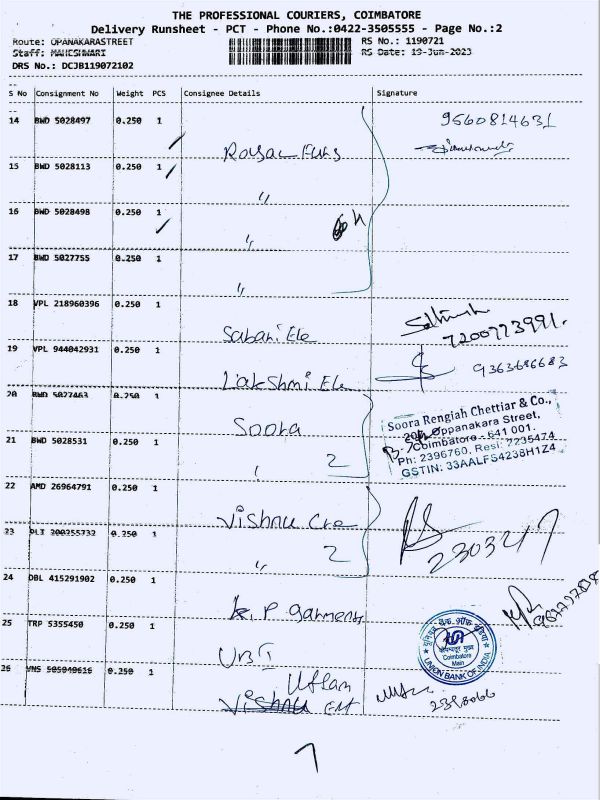 THE PROFESSIONAL COURIERS, COIMBATORE
Delivery Runsheet - PCT - Phone No.:0422-3505555 - Page No.:2
Route: OPANAKARASTREET RS No.: 1190721
Staff: MAHESHWARI RS Date: 19-Jun-2023
DRS No.: DCJB119072102
S No Consignment No Weight PCS Consignee Details Signature
14 BWD 5028497 0.250 1 9560814631
15 BWD 5028113 0.250 1
16 BWD 5028498 0.250 1 "
17 BWD 5027755 0.250 1 "
"
18 VPL 218960396 0.250 1
Sabari Ele 7200773991.
19 VPL 944042931 0.250 1
Lakshmi Ele 9363686683
20 BWD 5027463 0.250 1
Soora
Soora Rengiah Chettiar & Co.,
Oppanakara Street,
Coimbatore - 641 001.
Ph: 2396760, Resi: 2235474
GSTIN: 33AALFS4238H1Z4
21 BWD 5028531 0.250 1
2
22 AMD 26964791 0.250 1
Vishnu Cre
23 PLI 200255732 0.250 1 2303247
" 2
24 DBL 415291902 0.250 1
K. P Garments
25 TRP 5355450 0.250 1
UBI
यूनियन बैंक ऑफ इंडिया
Coimbatore
Main
UNION BANK OF INDIA
26 VNS 505040616 0.250 1
Uttam
Vishnu Ele 2398066
7